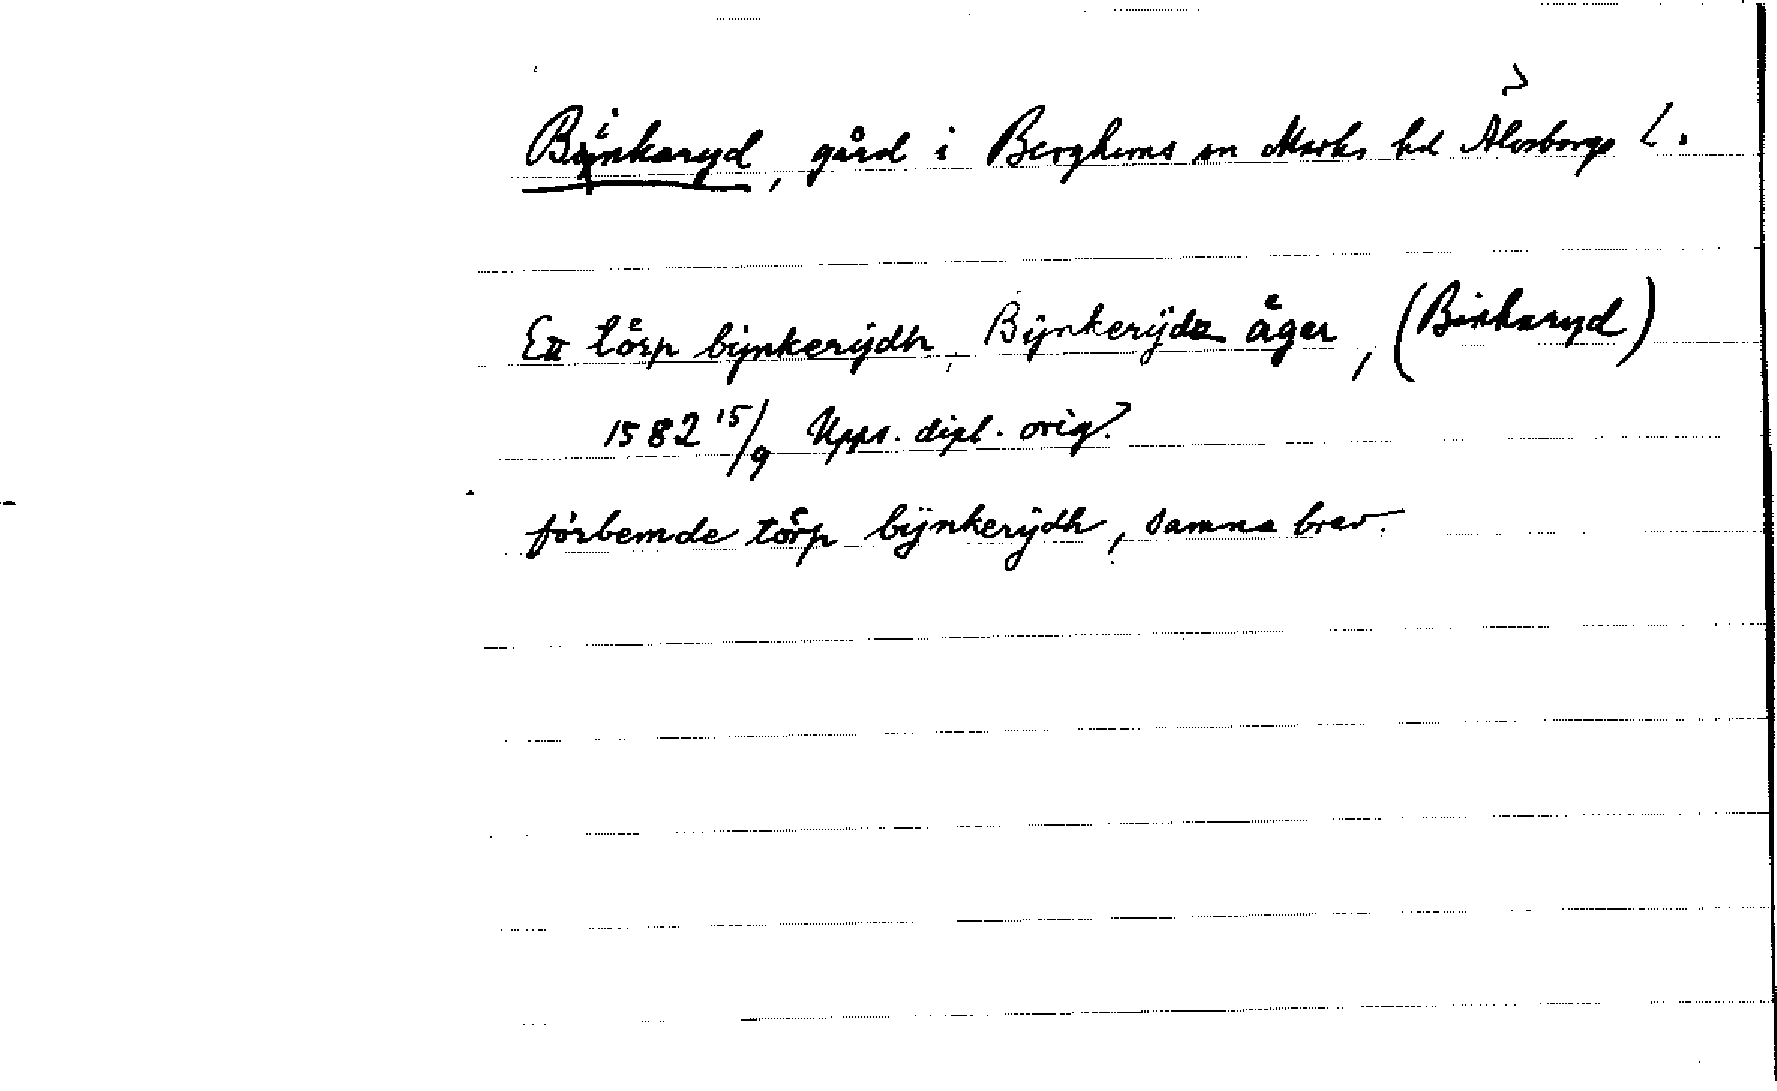 Binkaryd, gård i Berghems sn Marks hd Älvsborgs l.
Ett törp bijnkerijdh, Bijnkerijdz äger, (Binkaryd)
1582 15/9 Upps. dipl. orig.
förbemde törp bijnkerijdh, samma brev.